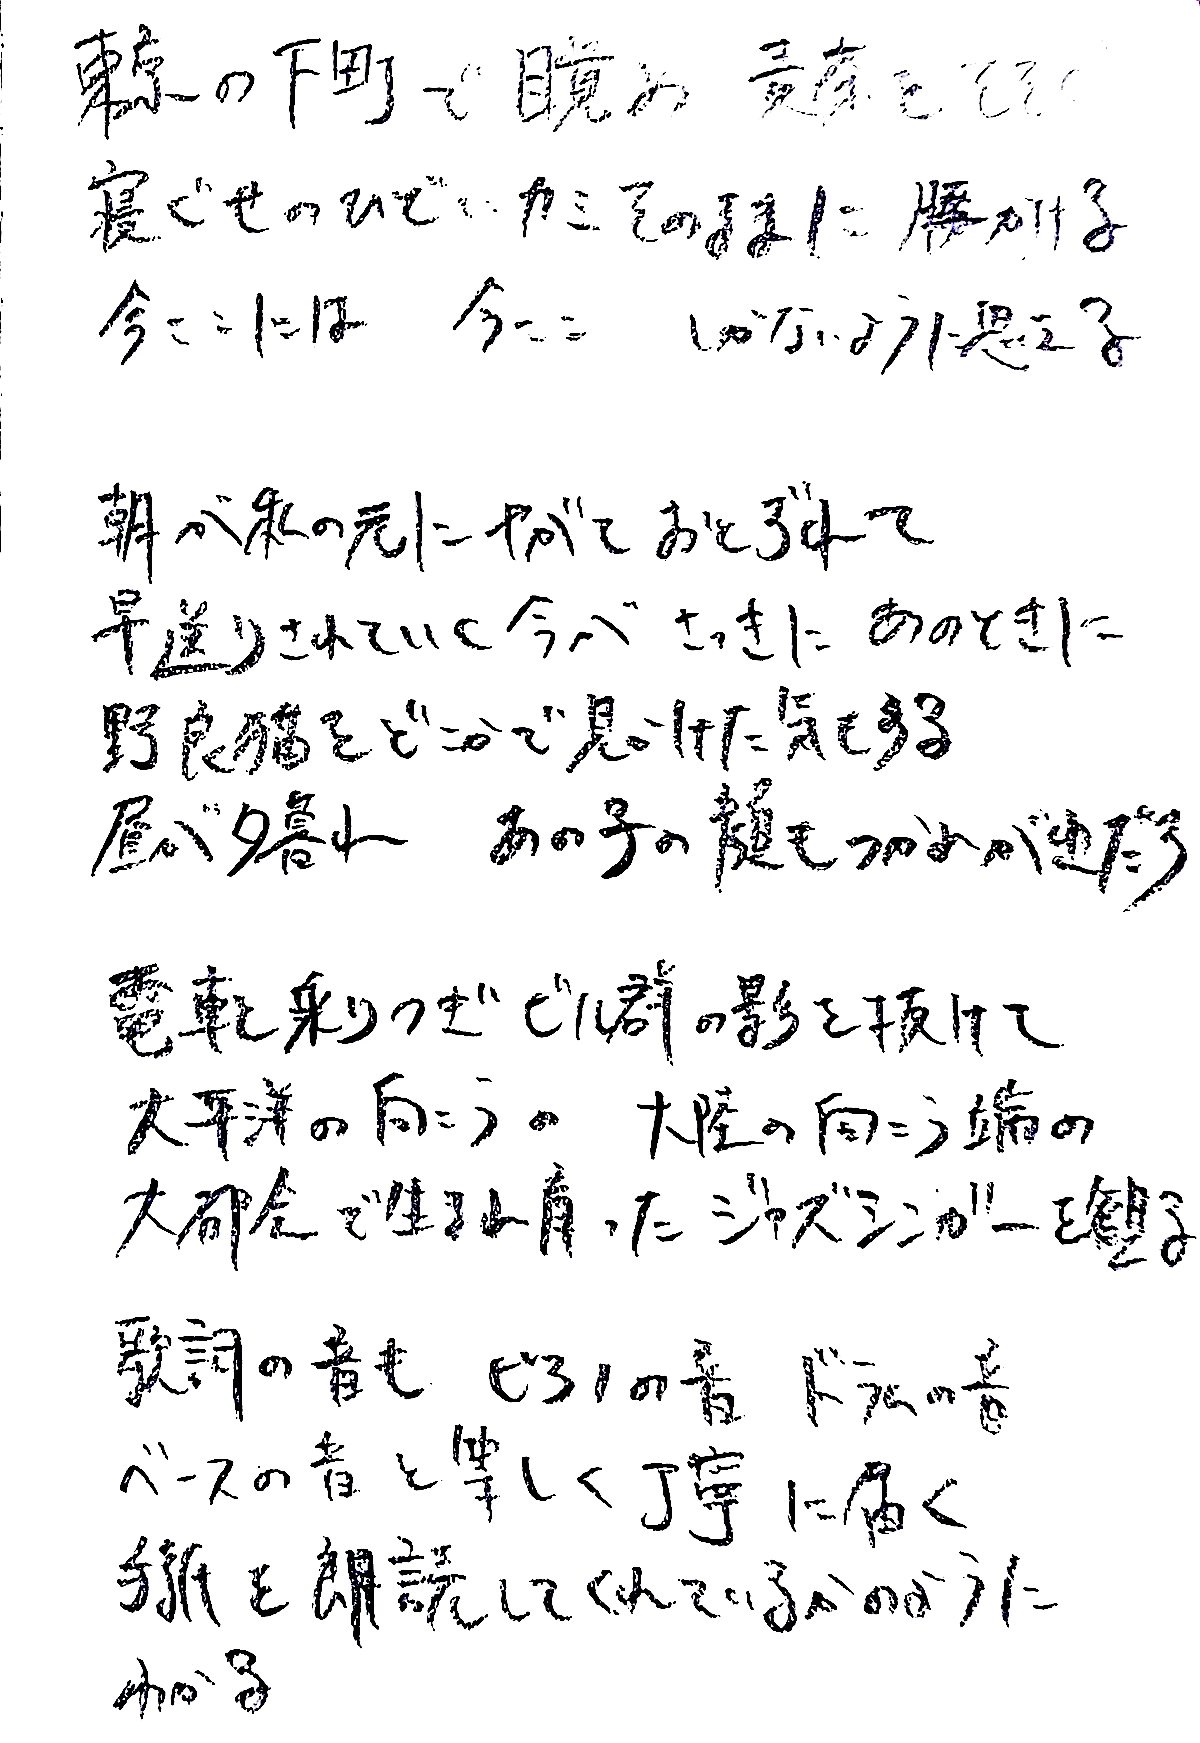 東京の下町で目覚め
寝ぐせのひどいカミそのままに腰かける
今ここには 今ここ しかないように思える
朝が私の元にやがておとずれて
早送りされていく今が さっきに あのときに
野良猫をどこかで見かけた気もする
昼が夕暮れ あの子の
電車を乗りつぎビル群の影を抜けて
太平洋の向こうの 大陸の向こう端の
大都会で生まれ育ったジャズシンガーを観る
歌詞の音も ピアノの音 ドラムの音
ベースの音と等しく丁寧に届く
手紙を朗読してくれているかのように
わかる